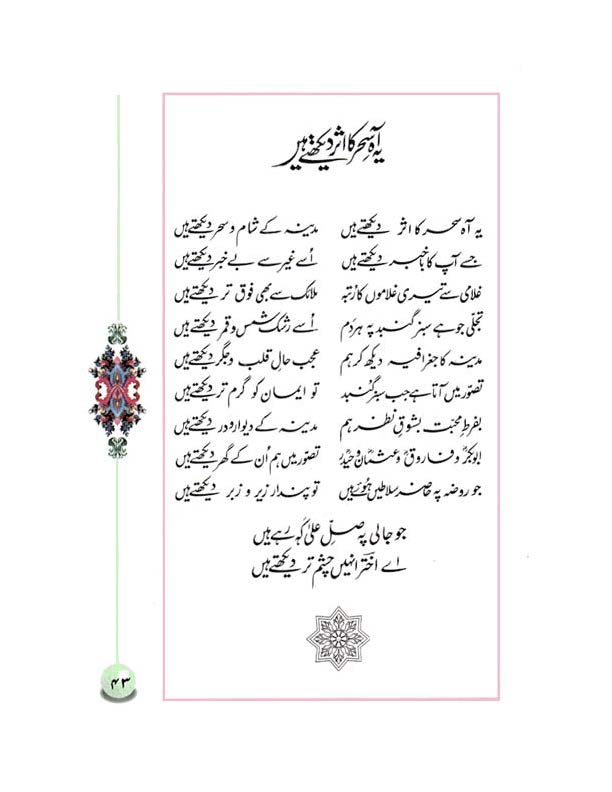 یہ آہ سحر کا اثر دیکھتے ہیں
یہ آہ سحر کا اثر دیکھتے ہیں مدینہ کے شام و سحر دیکھتے ہیں
جسے آپ کا باخبر دیکھتے ہیں اُسے غیر سے بے خبر دیکھتے ہیں
غلامی سے تیری غلاموں کا رُتبہ ملائک سے بھی فوق تر دیکھتے ہیں
تجلّی جو ہے سبز گنبد پہ ہر دَم اُسے رشکِ شمس و قمر دیکھتے ہیں
مدینہ کا جغرافیہ دیکھ کر ہم عجب حالِ قلب و جگر دیکھتے ہیں
تصوّر میں آتا ہے جب سبز گنبد تو ایمان کو گرم تر دیکھتے ہیں
بفرطِ محبت بشوقِ نظر ہم مدینہ کے دیوار و در دیکھتے ہیں
ابوبکرؓ و فاروقؓ و عثمانؓ و حیدرؓ تصوّر میں ہم اُن کے گھر دیکھتے ہیں
جو روضہ پہ حاضر سلاطیں ہوئے ہیں تو پندار زیر و زبر دیکھتے ہیں
جو جالی پہ صلِّ علیٰ کہہ رہے ہیں
اے اخترؔ انہیں چشمِ تر دیکھتے ہیں
۴۳